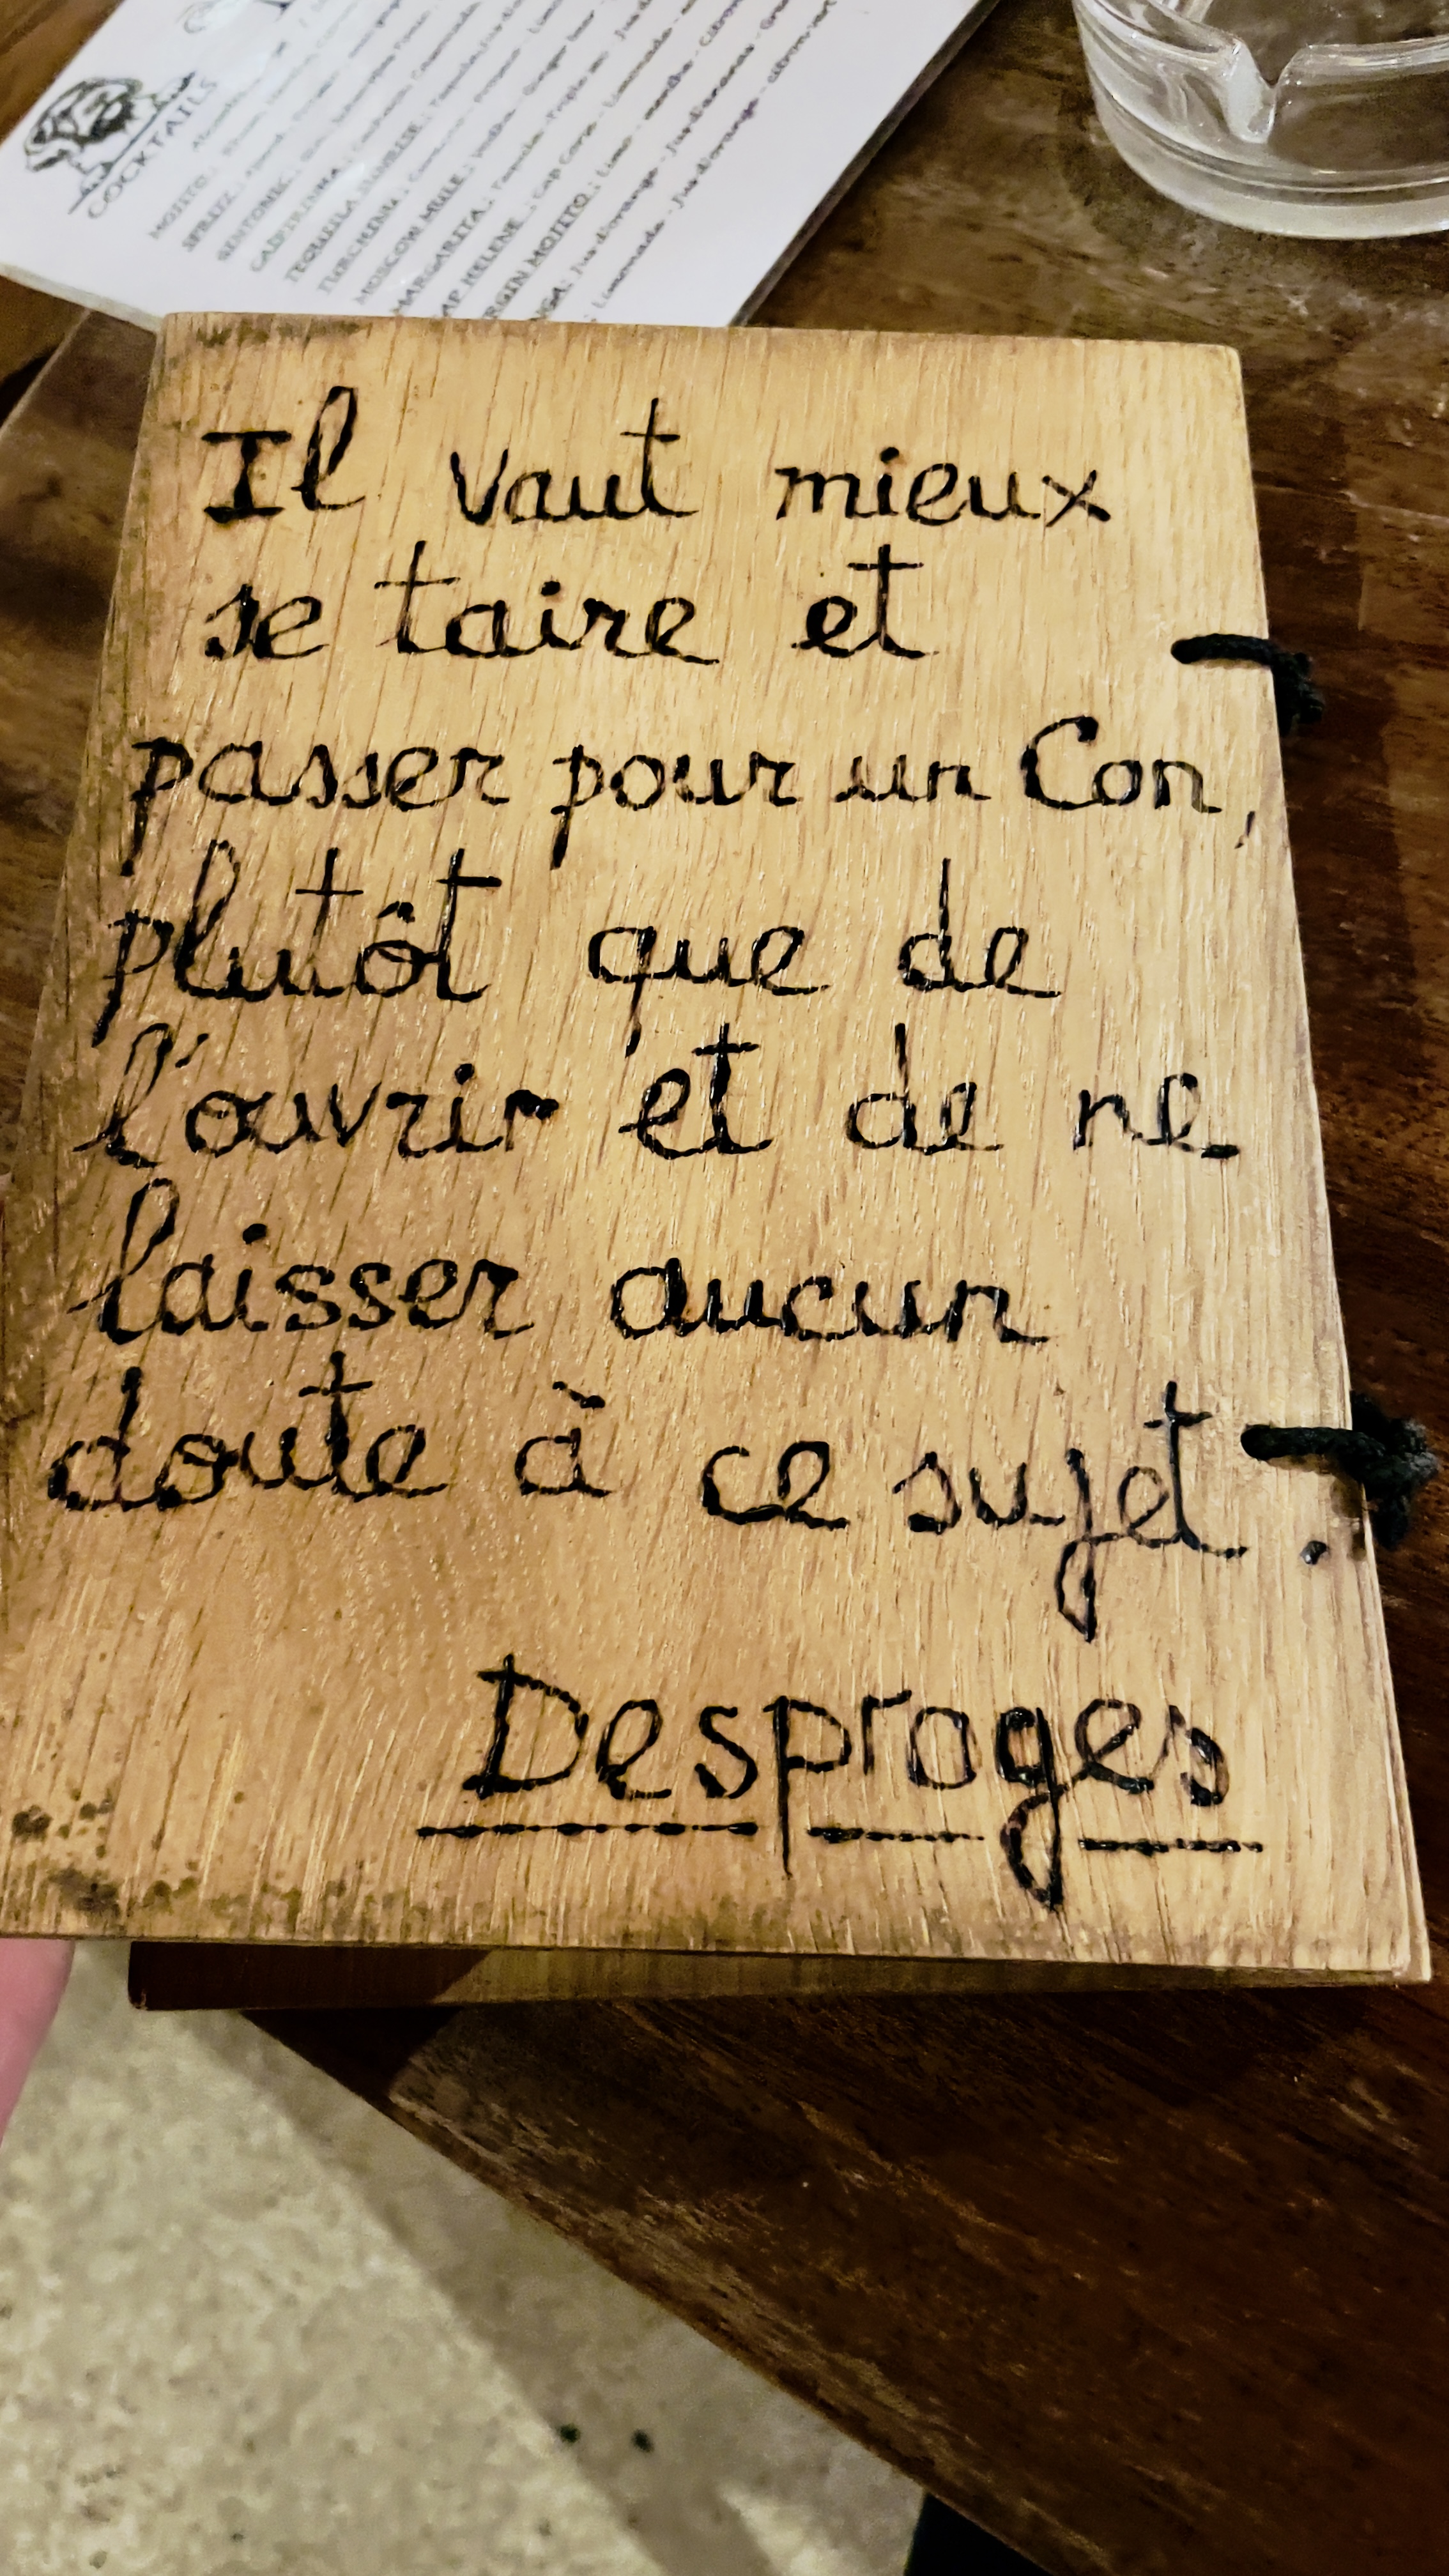 COCKTAILS
MOJITO :
SPRITZ :
GINTONIC :
CAIPIRINHA :
TEQUILA SUNRISE :
MOSCOW MULE : Vodka - Ginger beer
MARGARITA : Tequila - Triple sec
AP HELENE : Cap Corse - Limonade
RGIN MOJITO :
NGA : Jus d'orange - Jus d'ananas
: Limonade - Jus d'orange
Il vaut mieux
se taire et
passer pour un Con,
plutôt que de
l'ouvrir et de ne
laisser aucun
doute à ce sujet.
Desproges